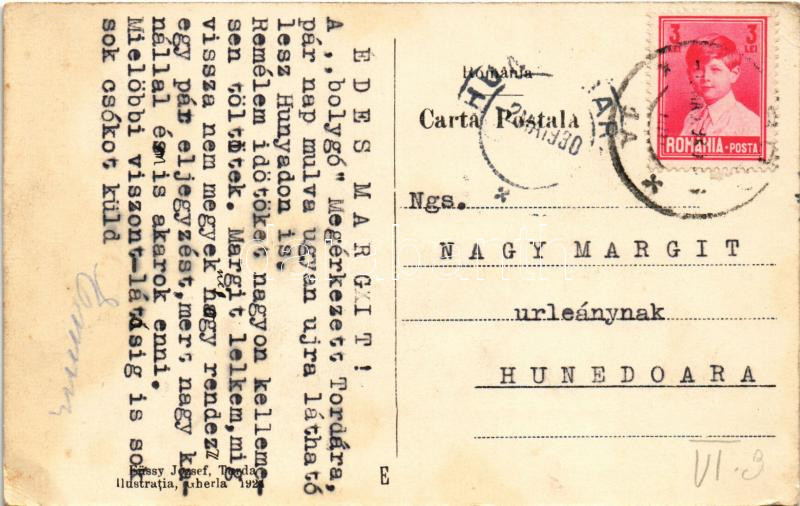 ÉDES MARGIT!
A „bolygó" Megérkezett Tordára,
pár nap mulva ugyan ujra látható
lesz Hunyadon is.
Remélem időtöket nagyon kelleme-
sen töltötek. Margit lelkem, mig
vissza nem megyek, nagy rendezz
egy pár eljegyzést, mert nagy ka-
nállal én is akarok enni.
Mielőbbi viszont-látásig is so
sok csókot küld
Füssy József, Torda
Ilustrația, Gherla
E
România
Carta Postala
3 LEI 3 LEI
ROMÂNIA-POSTA
Ngs.
NAGY MARGIT
urleánynak
HUNEDOARA
VI.3